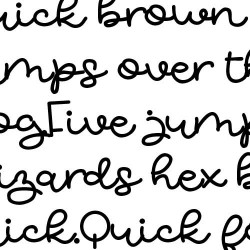 uick brown
umps over th
og.Five jump
izards hex b
ick.Quick f